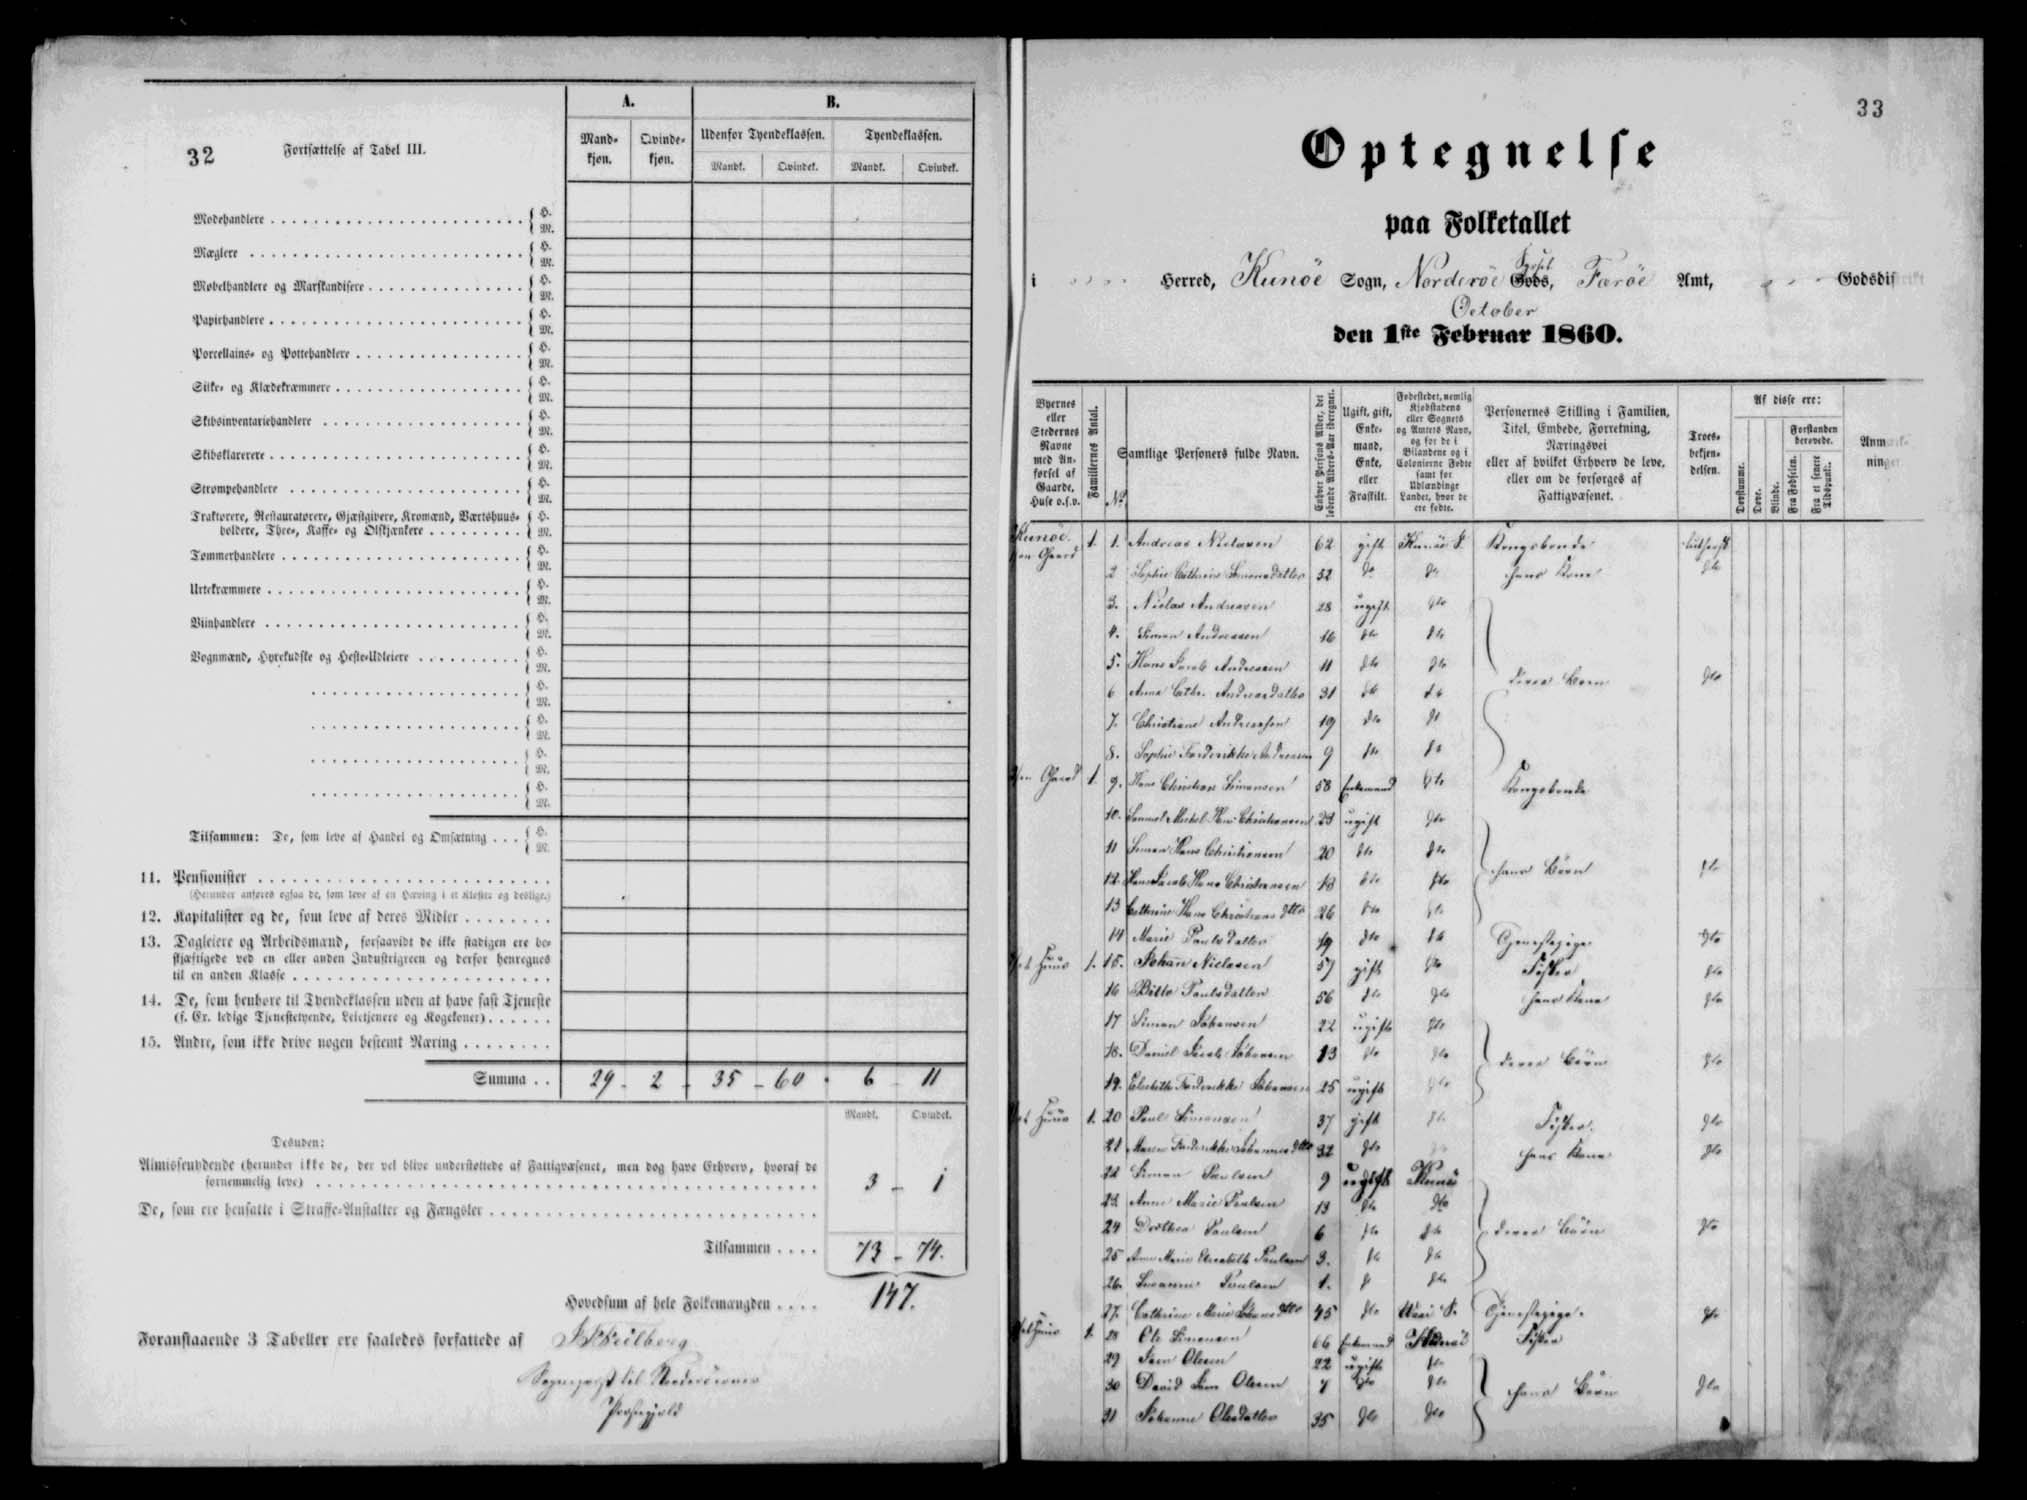 32
Fortsættelse af Tabel III.
A.
B.
Mand-
kjøn.
Qvinde-
kjøn.
Udenfor Tyendeklassen.
Tyendeklassen.
Mandk.
Qvindek.
Mandk.
Qvindek.
Modehandlere { H.
M.
Mæglere { H.
M.
Møbelhandlere og Marskandisere { H.
M.
Papirhandlere { H.
M.
Porcellains- og Pottehandlere { H.
M.
Silke- og Klædekræmmere { H.
M.
Skibsinventariehandlere { H.
M.
Skibsklarerere { H.
M.
Strømpehandlere { H.
M.
Traktører, Restauratører, Gjæstgivere, Kromænd, Værtshuus-
holdere, Thee-, Kaffe- og Ølskjænkere { H.
M.
Tømmerhandlere { H.
M.
Urtekræmmere { H.
M.
Viinhandlere { H.
M.
Vognmænd, Hyrekudske og Heste-Udleiere { H.
M.
{ H.
M.
{ H.
M.
{ H.
M.
{ H.
M.
Tilsammen: De, som leve af Handel og Omsætning { H.
M.
11. Pensionister
(Herunder anføres ogsaa de, som leve af en Hæving i et Kloster og deslige.)
12. Kapitalister og de, som leve af deres Midler
13. Dagleiere og Arbeidsmænd, forsaavidt de ikke stadigen ere be-
skjæftigede ved en eller anden Industrigreen og derfor henregnes
til en anden Klasse
14. De, som henhøre til Tyendeklassen uden at have fast Tjeneste
(f. Ex. ledige Tjenestetyende, Leietjenere og Kogekoner)
15. Andre, som ikke drive nogen bestemt Næring
Summa . . 29 - 2 - 35 - 60 - 6 - 11
Mandk. Qvindek.
Desuden:
Almissenydende (herunder ikke de, der vel blive understøttede af Fattigvæsenet, men dog have Erhverv, hvoraf de
fornemmelig leve) 3 - 1
De, som ere hensatte i Straffe-Anstalter og Fængsler
Tilsammen . . . . 73 - 74.
Hovedsum af hele Folkemængden . . . . 147.
Foranstaaende 3 Tabeller ere saaledes forfattede af
33
Optegnelse
paa Folketallet
Syssel
i Herred, Kunöe Sogn, Norderöe Gods, Færöe Amt, Godsdistrikt
October
den 1ste Februar 1860.
Byernes
eller
Stedernes
Navne
med An-
førsel af
Gaarde,
Huse o.s.v.
Familiernes Antal.
No.
Samtlige Personers fulde Navn.
Enhver Persons Alder, det
løbende Alders-Aar iberegnet.
Ugift, gift,
Enke-
mand,
Enke,
eller
Fraskilt.
Fødestedet, nemlig
Kjøbstadens
eller Sognets
og Amtets Navn,
og for de i
Bilandene og i
Colonierne Fødte
samt for
Udlændinge
Landet, hvor de
ere fødte.
Personernes Stilling i Familien,
Titel, Embede, Forretning,
Næringsvei
eller af hvilket Erhverv de leve,
eller om de forsørges af
Fattigvæsenet.
Troes-
bekjen-
delsen.
Af disse ere:
Døvstumme.
Døve.
Blinde.
Forstanden
berøvede.
Fra Fødselen.
Fra et senere
Tidspunkt.
Anmærk-
ninger.
Kunöe. 1. 1. Andreas Niclasen 62 gift Kunöe S. Kongsbonde luthersk
2 Sophie Cathrine Simonsdatter 52 do do hans Kone do
3. Niclas Andreasen 28 ugift do
4. Simon Andreasen 16 do do
5. Hans Jacob Andreasen 11 do do
deres Børn do
6 Anna Cathr. Andreasdatter 31 do do
7. Christiane Andreasen 19 do do
8. Sophie Frederikke Andreasen 9 do do
Gaard 1. 9. Hans Christian Simonsen 58 Enkemand do Kongsbonde
10. Samuel Michel Hans Christiansen 23 ugift do
11 Simon Hans Christiansen 20 do do
hans Børn do
12. Hans Jacob Hans Christiansen 18 do do
13 Cathrine Hans Christians dtto 26 do do
14 Marie Poulsdatter 19 do do Tjenestepige do
Huus 1. 15. Johan Niclasen 57 gift do Fisker do
16 Billo Poulsdatter 56 do do hans Kone do
17 Simon Johansen 22 ugift do
18. Daniel Jacob Johansen 13 do do deres Børn do
19. Elsebeth Frederikke Johansen 25 ugift do
Huus 1. 20 Poul Simonsen 37 gift do Fisker. do
21 Maren Frederikke Johannes dtto 32 do do hans Kone do
22 Simon Poulsen 9 ugift Kunöe
23. Anne Marie Poulsen 13 do do
24 Dorthea Poulsen 6 do do deres Børn do
25 Anne Marie Elsebeth Poulsen 3. do do
26. Susanne Poulsen 1. do do
27. Cathrine Marie Johans dtto 45 do S. Tjenestepige. do
Huus 1. 28 Ole Simonsen 66 Enkemand Kunöe Fisker
29 Olesen 22 ugift do
30 David Olesen 7 do do hans Børn do
31 Johanne Olesdatter 35 do do